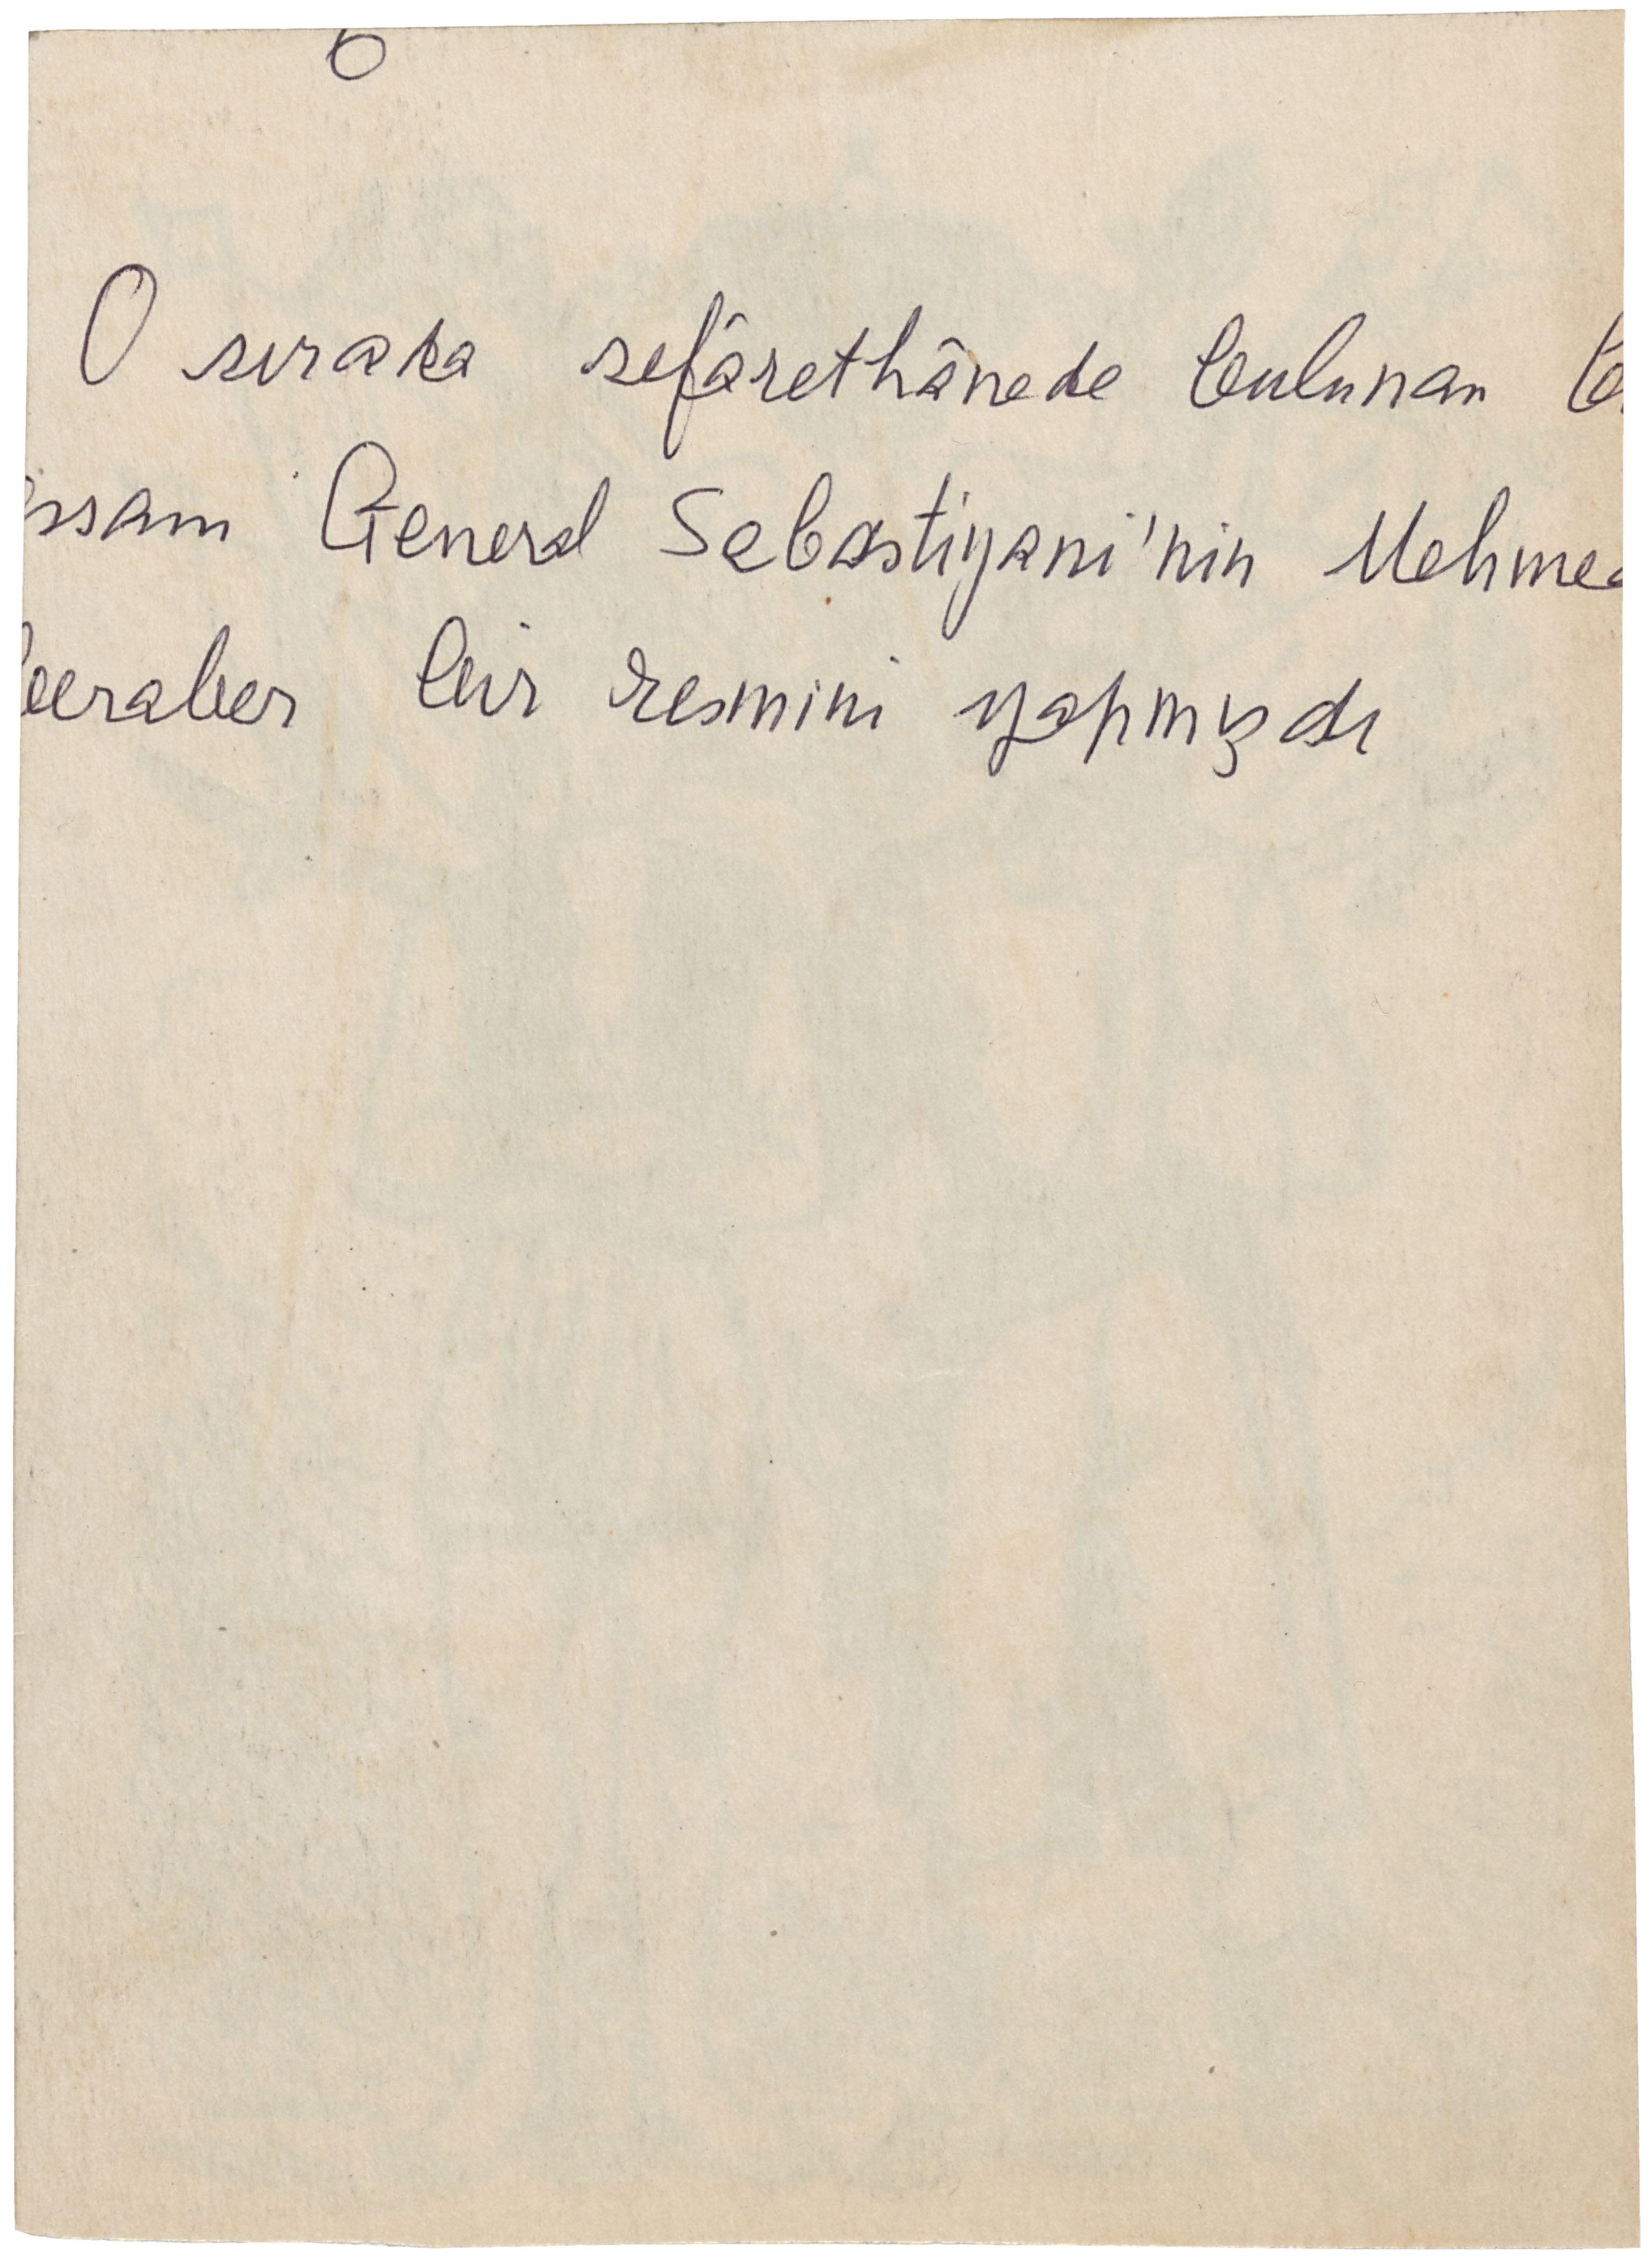 6
O sırada sefârethânede bulunan b
essam General Sebastiyani'nin Mehmed
beraber bir resmini yapmışdı